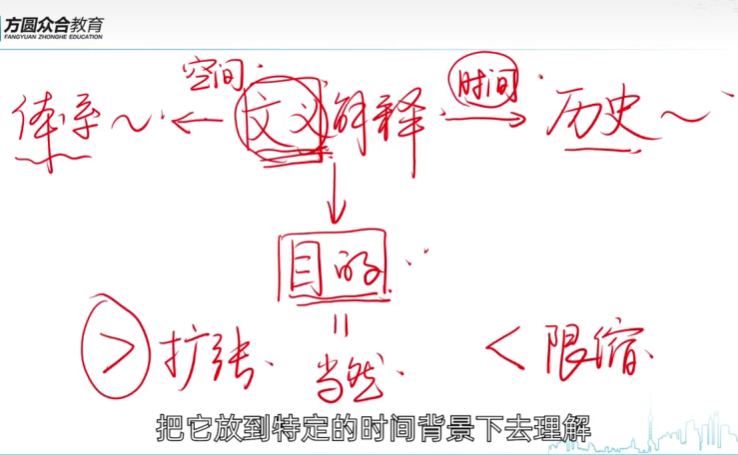 方圆众合教育
FANGYUAN ZHONGHE EDUCATION
空间 时间
体系～ ← 文义解释 → 历史～
↓
目的
>扩张 = 当然 <限缩
把它放到特定的时间背景下去理解